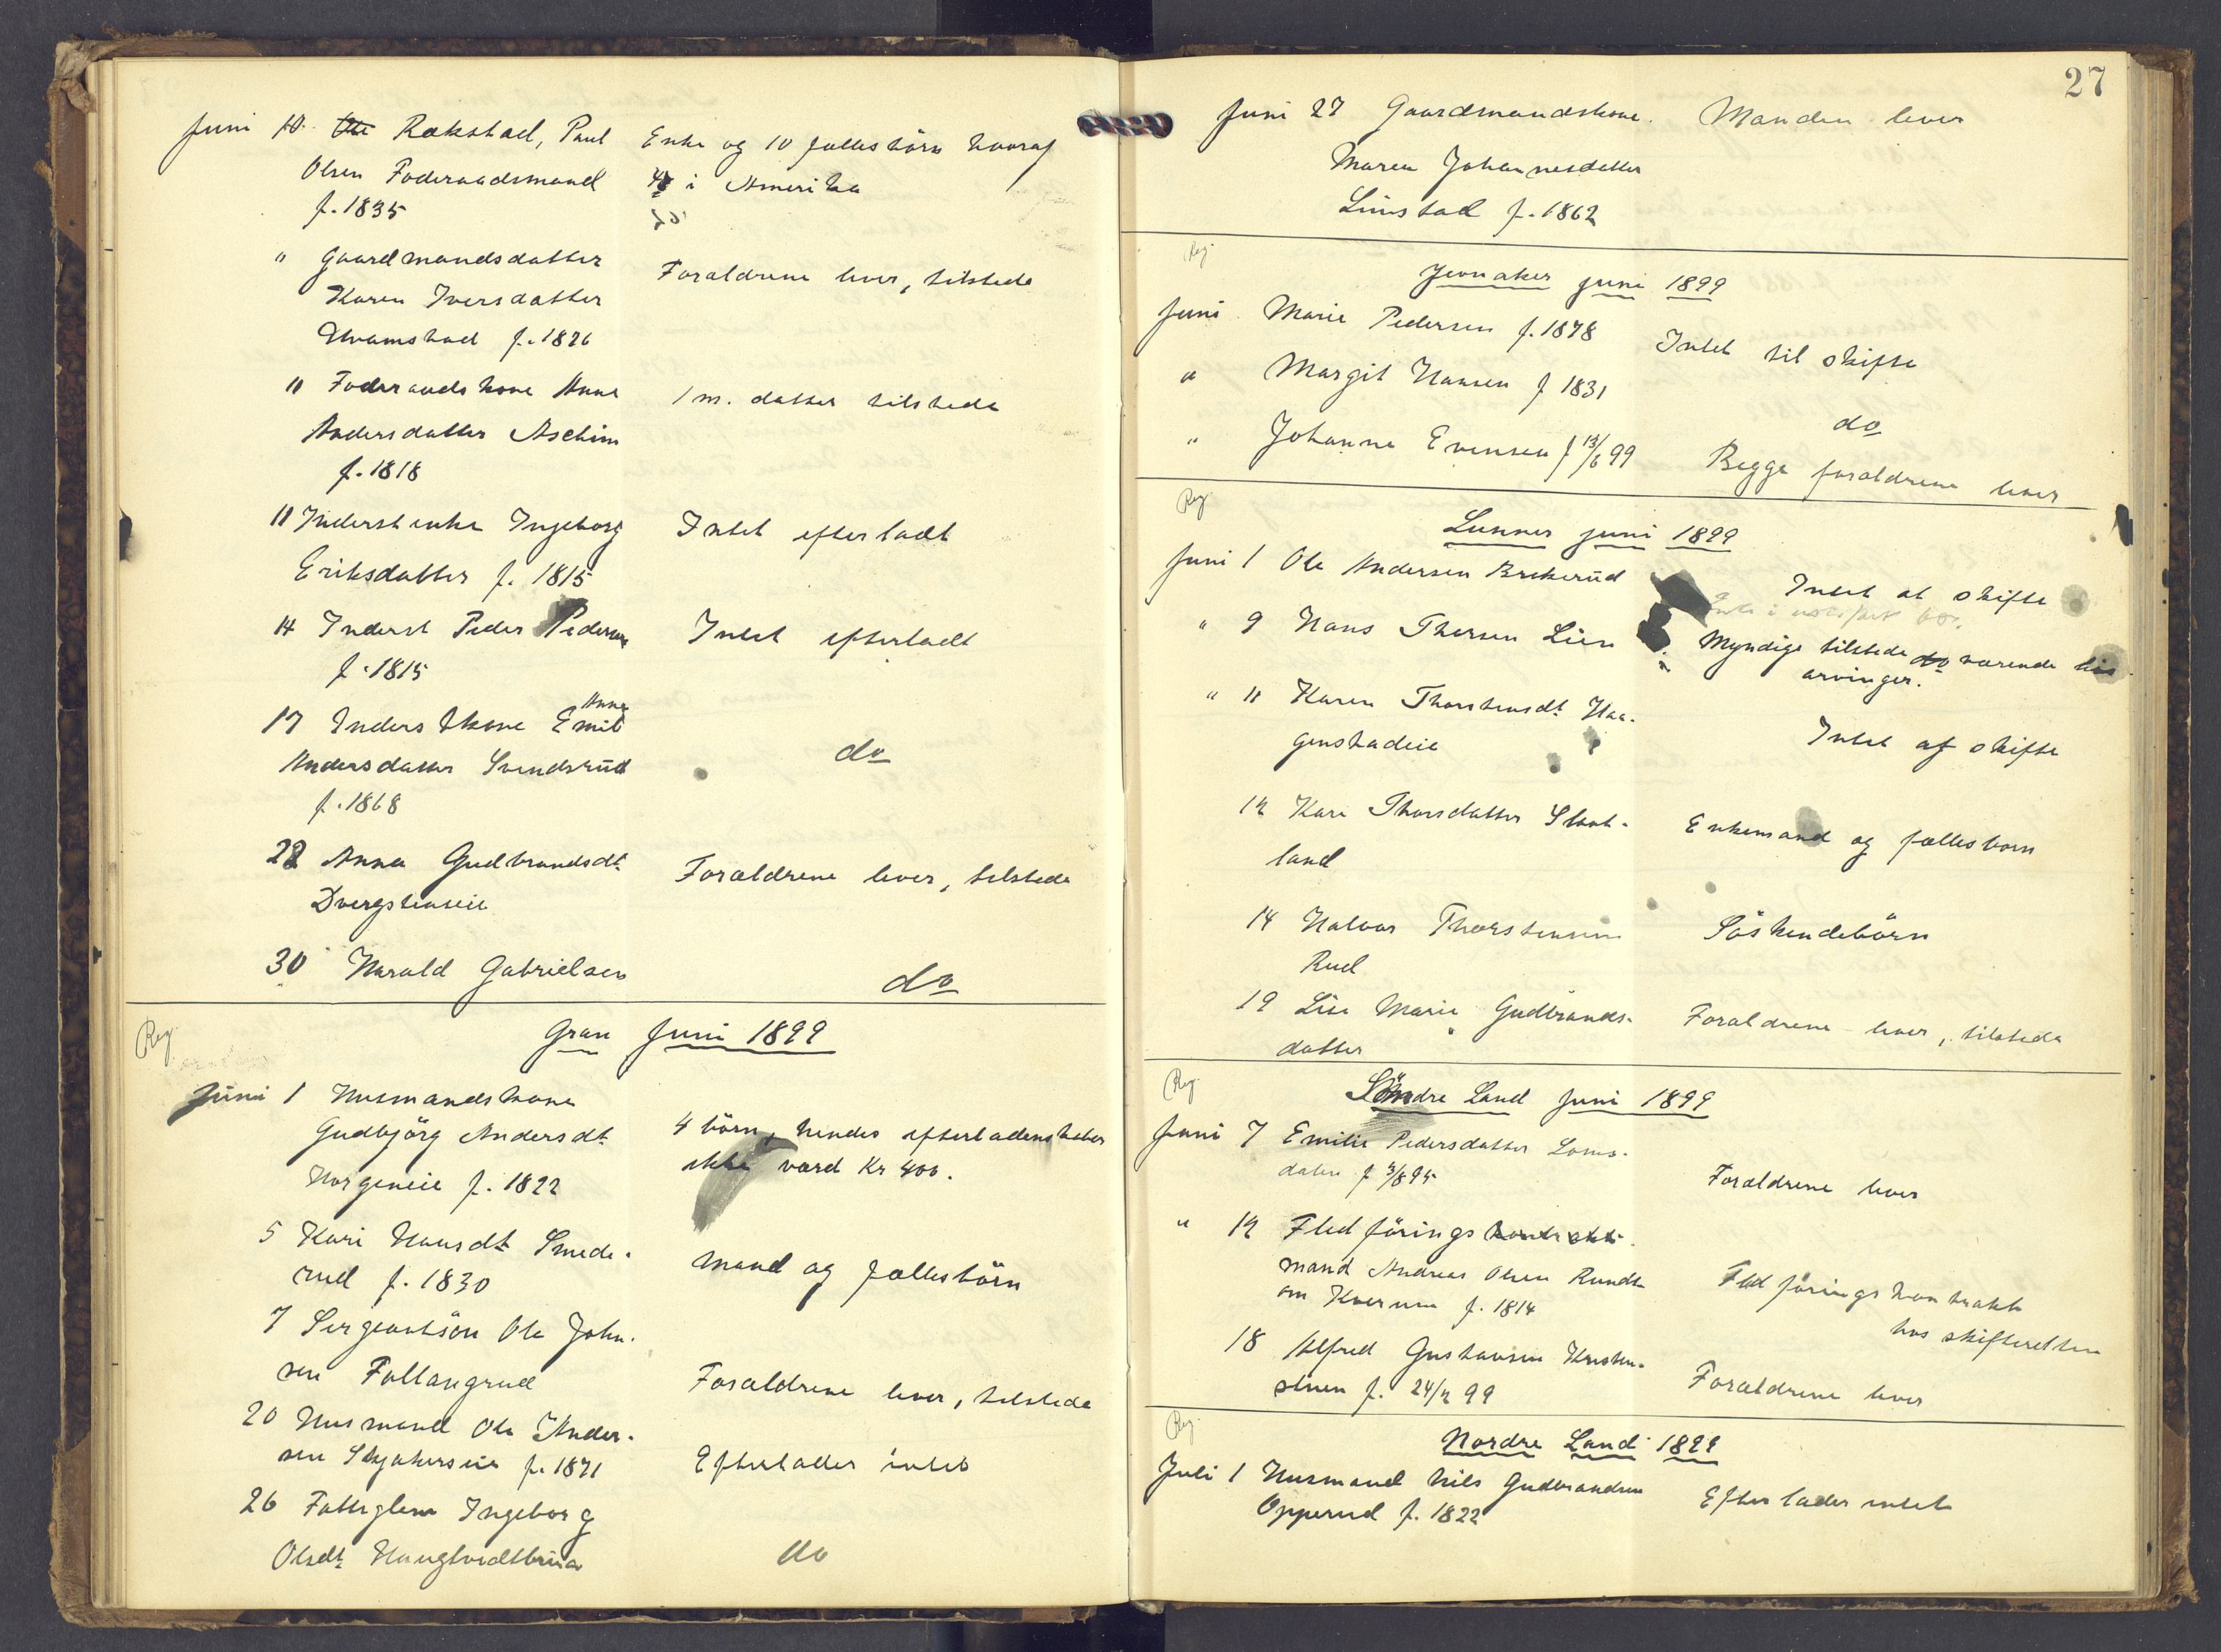 Juni 10. Rækstad, Paul Enke og 10 fællesbörn hvoraf
Olsen Föderaadsmand 4 i Amerika
f. 1835
" Gaardmandsdatter Forældrene lever, tilstede
Karen Iversdatter
f. 1876
11 Föderaadskone Anne 1 m. datter tilstede
Andersdatter Aschim
f. 1818
11 Inderstenke Ingeborg Intet efterladt
Eriksdatter f. 1815
14 Inderst Peder Pedersen Intet efterladt
f. 1815
Anne
17 Inderstkone Emil do
Andersdatter Svendsrud
f. 1868
22 Anna Gudbrandsdt. Forældrene lever, tilstede
Dvergsteneie
30 Harald Gabrielsen do
Reg.
Gran Juni 1899
Juni 1 Husmandskone
Gudbjörg Andersdt. 4 börn, hendes efterladenskaber
Horgeneie f. 1822 ikke værd Kr 400.
5 Kari Hansdt. Smeds- Mand og fællesbörn
rud f. 1830
7 Sergeantsön Ole John-
sen Fallangrud Forældrene lever, tilstede
20 Husmand Ole Ander-
sen Skjakerseie f. 1871 Efterlader intet
26 Fattiglem Ingeborg
Olsdt. do
27
Juni 27 Gaardmandskone. Manden lever
Maren Johannesdatter
Linstad f. 1862
Reg.
Jevnaker juni 1899
Juni Marie Pedersen f. 1878 Intet til skifte
" Margit Hansen f 1831 do
" Johanne Evensen f 13/6 99 Begge forældrene lever
Reg.
Lunner juni 1899
Juni 1 Ole Andersen Brekerud Intet at skifte
Enke i uskiftet bo.
" 9 Hans Thorsen Lien Myndige tilstedeværende
arvinger.
" 11 Karen Thorstensdt. Haa- Intet at skifte
genstadeie
12 Kari Thorsdatter Slaat- Enkemand og fællesbörn
land
14 Halvor Thorstensen Söskendebörn
Rud
19 Lise Marie Gudbrands- Forældrene lever, tilstede
datter
Reg.
Söndre Land Juni 1899
Juni 7 Emilie Pedersdatter Loms-
dalen f 3/8 95 Forældrene lever
" 12 Fledföringskontrakt-
mand Andreas Olsen Rundt- Fledföringskontrakt
om Kverum f. 1814 hos skifteretten
18 Alfred Gustavsen Kristen-
stuen f. 24/2 99 Forældrene lever
Reg.
Nordre Land 1899
Juli 1 Husmand Nils Gudbrandsen Efterlader intet
Opperud f. 1822